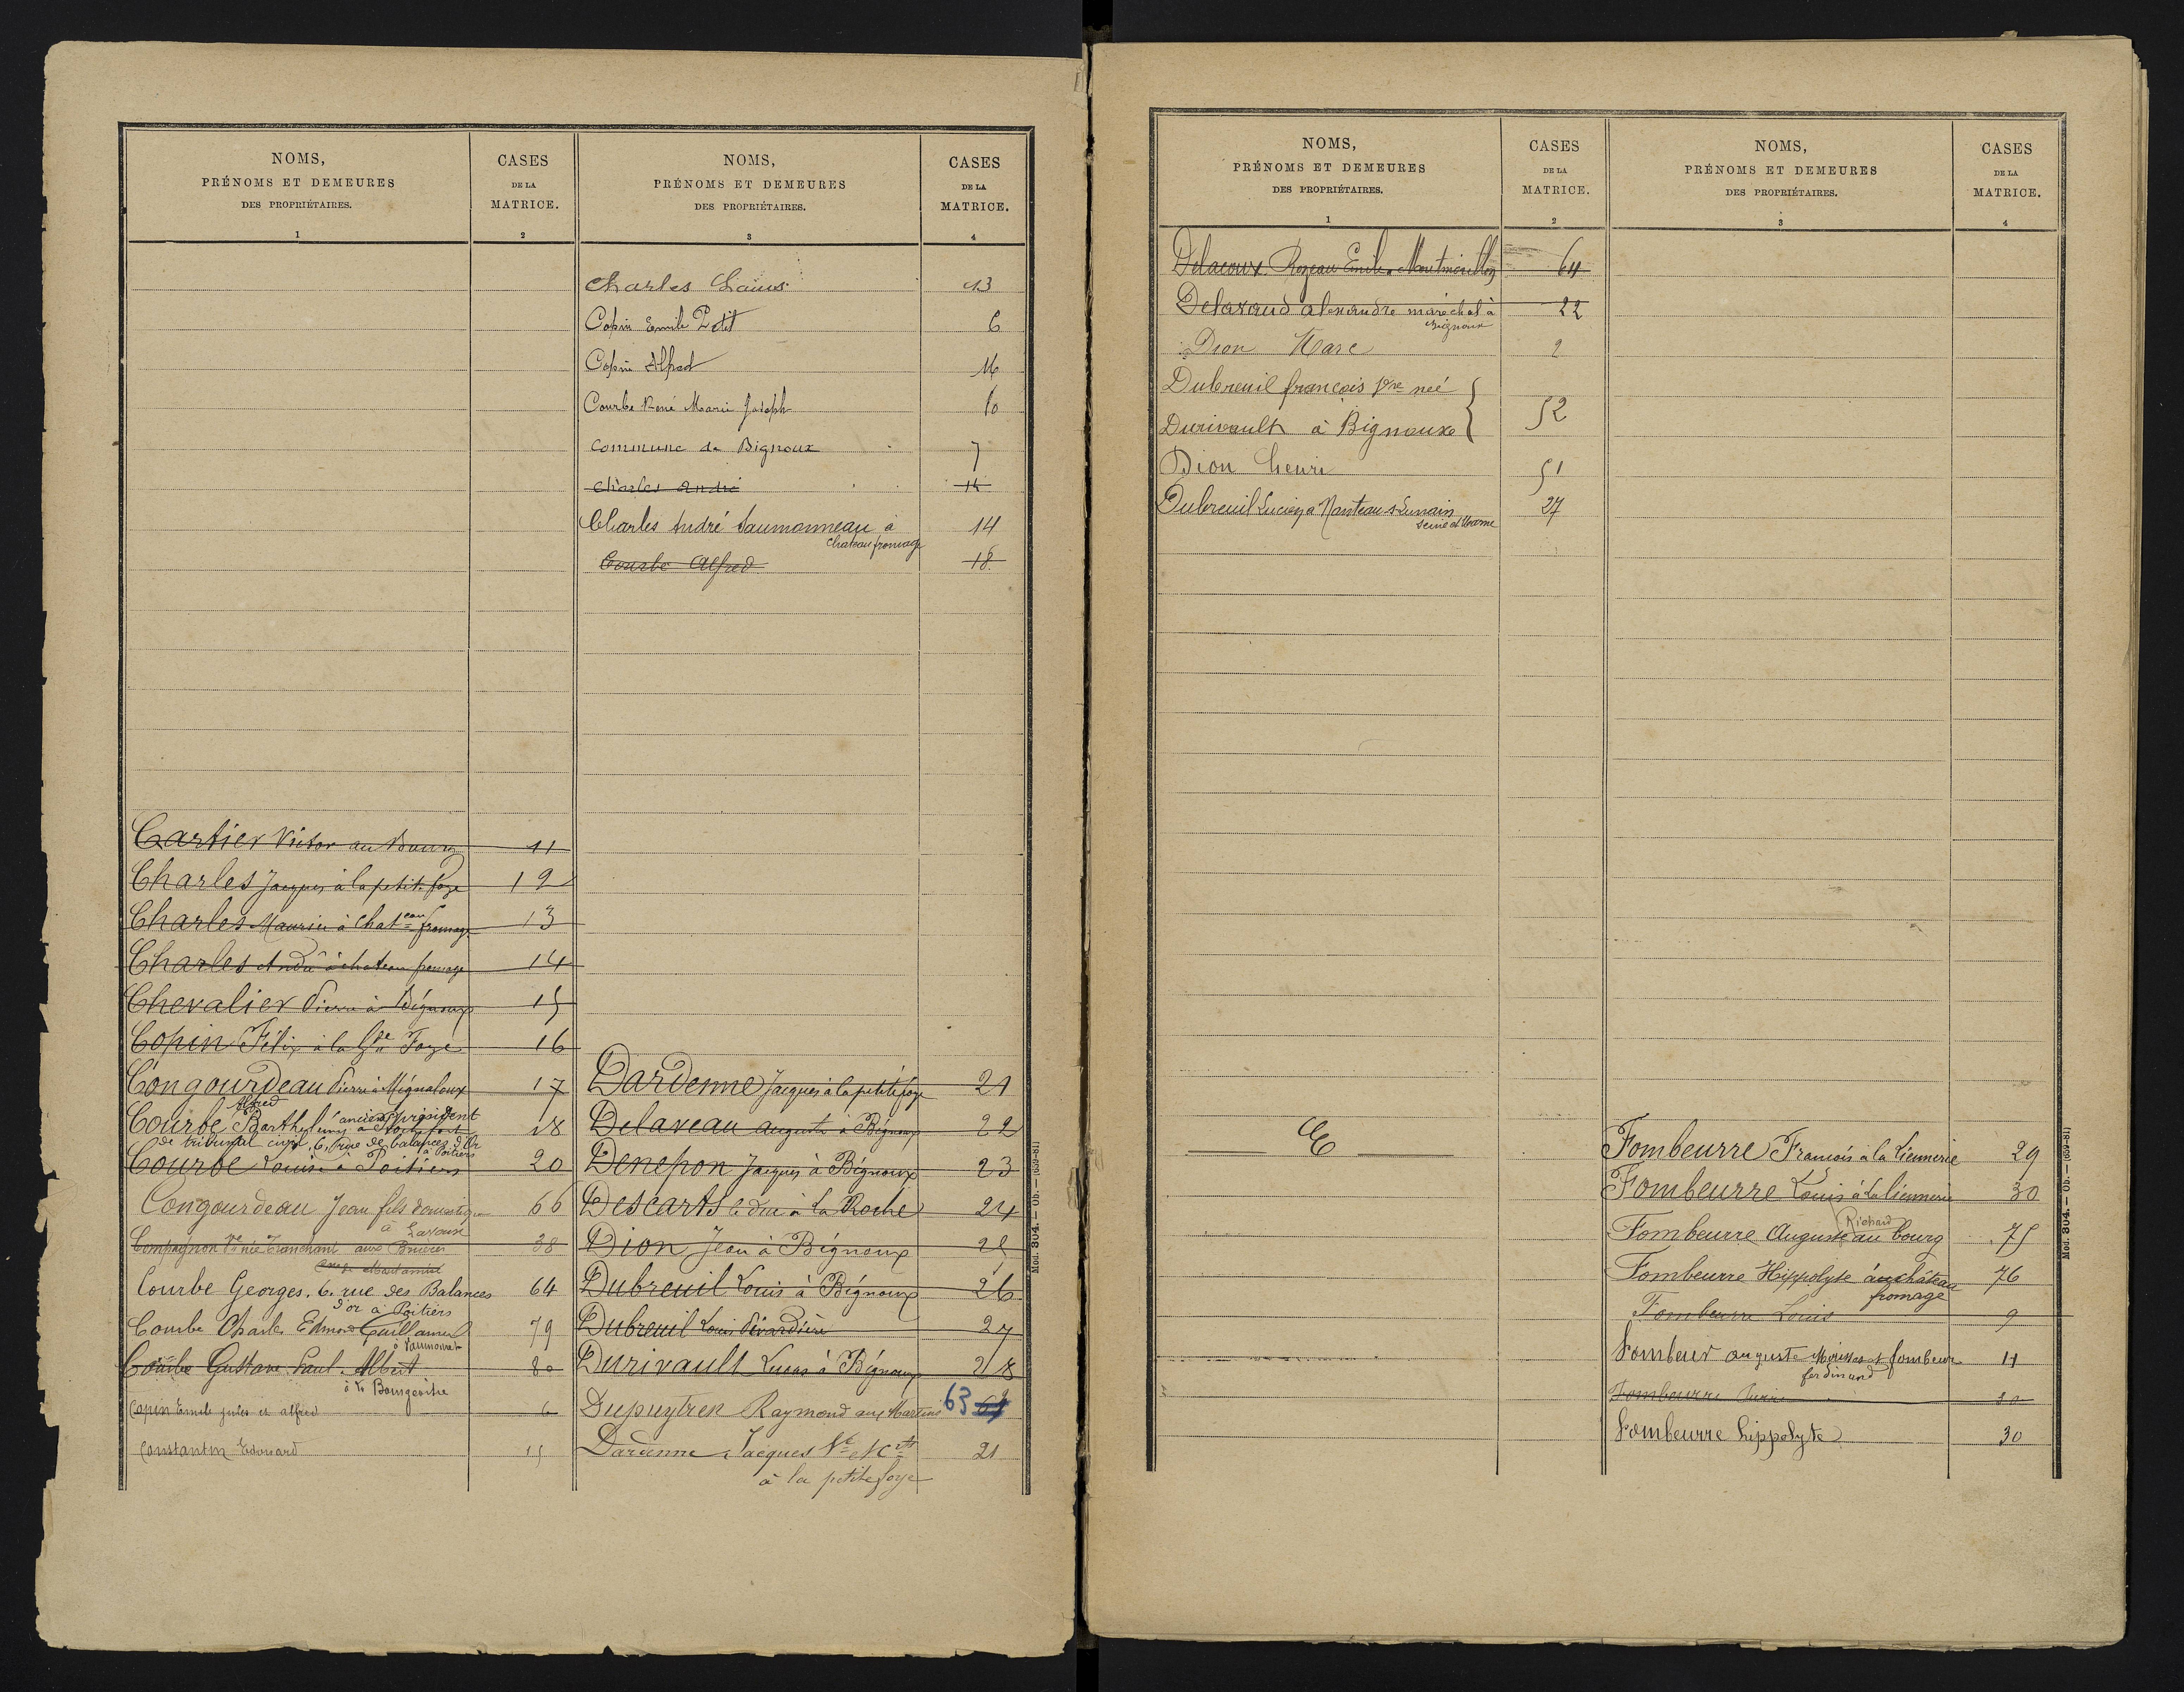 NOMS,
PRÉNOMS ET DEMEURES
DES PROPRIÉTAIRES.
1
CASES
DE LA
MATRICE.
2
Cartier Victor au Bourg 11
Charles Jacques à la petite foye 12
Charles Maurice à Chateau fromage 13
Charles André à chateau fromage 14
Chevalier Pierre à Bignoux 15
Copin Félix à la Gde Foye 16
Congourdeau Pierre à Mignaloux 17
Alfred
Courbe Barthelemy ancien president 18
de tribunal civil, 6, Rue de balances d'Or
à Poitiers
Courbe Louise à Poitiers 20
Congourdeau Jean fils domestique 66
à Lavausé
Compagnon Vve née Tranchant aux 38
Courbe Georges. 6. rue des Balances 64
d'or à Poitiers
Courbe Charles Edmond Guillaume 79
Courbe Gustave Paul Albert 80
à la
Copin Emile jules et alfred 6
Constantin Edouard 15
NOMS,
PRÉNOMS ET DEMEURES
DES PROPRIÉTAIRES.
3
CASES
DE LA
MATRICE.
4
Charles 13
Copin Emile Petit 6
Copin Alfred 16
Courbe René Marie Joseph 10
Commune de Bignoux 7
Charles André 14
Charles André Saumonneau à 14
Chateau fromage
Courbe Alfred 18
Dardenne Jacques à la petite foye 21
Delaveau Auguste à Bignoux 22
Denepon Jacques à Bignoux 23
Descarts le duc à La Roche 24
Dion Jean à Bignoux 25
Dubreuil Louis à Bignoux 26
Dubreuil Louis 27
Durivault Lucas à Bignoux 28
Dupuytrek Raymond aux Martins 63
Dardenne Jacques Ve et Cts 21
à la petite foye
Mod. 304. — Ob. — (659-81)
NOMS,
PRÉNOMS ET DEMEURES
DES PROPRIÉTAIRES.
1
CASES
DE LA
MATRICE.
2
Delacoux Rozeau Emile Montmorillon 64
Delavaud alexandre maréchal à 22
Bignoux
Dion Marc 2
Dubreuil françois Vve neé
Durivault à Bignoux 52
Dion henri 51
Dubreuil Lucien a Nanteau s Lunain 27
seine et Marne
E
NOMS,
PRÉNOMS ET DEMEURES
DES PROPRIÉTAIRES.
3
CASES
DE LA
MATRICE.
4
Fombeurre François à la Liennerie 29
Fombeurre Louis à la liennerie 30
Richard
Fombeurre Auguste au bourg 75
Fombeurre Hippolyte au château 76
fromage
Fombeurre Louis 9
Fombeur auguste et fombeur 11
ferdinand
Fombeurre 30
Fombeurre hippolyte 30
Mod. 304. — Ob. — (659-81)